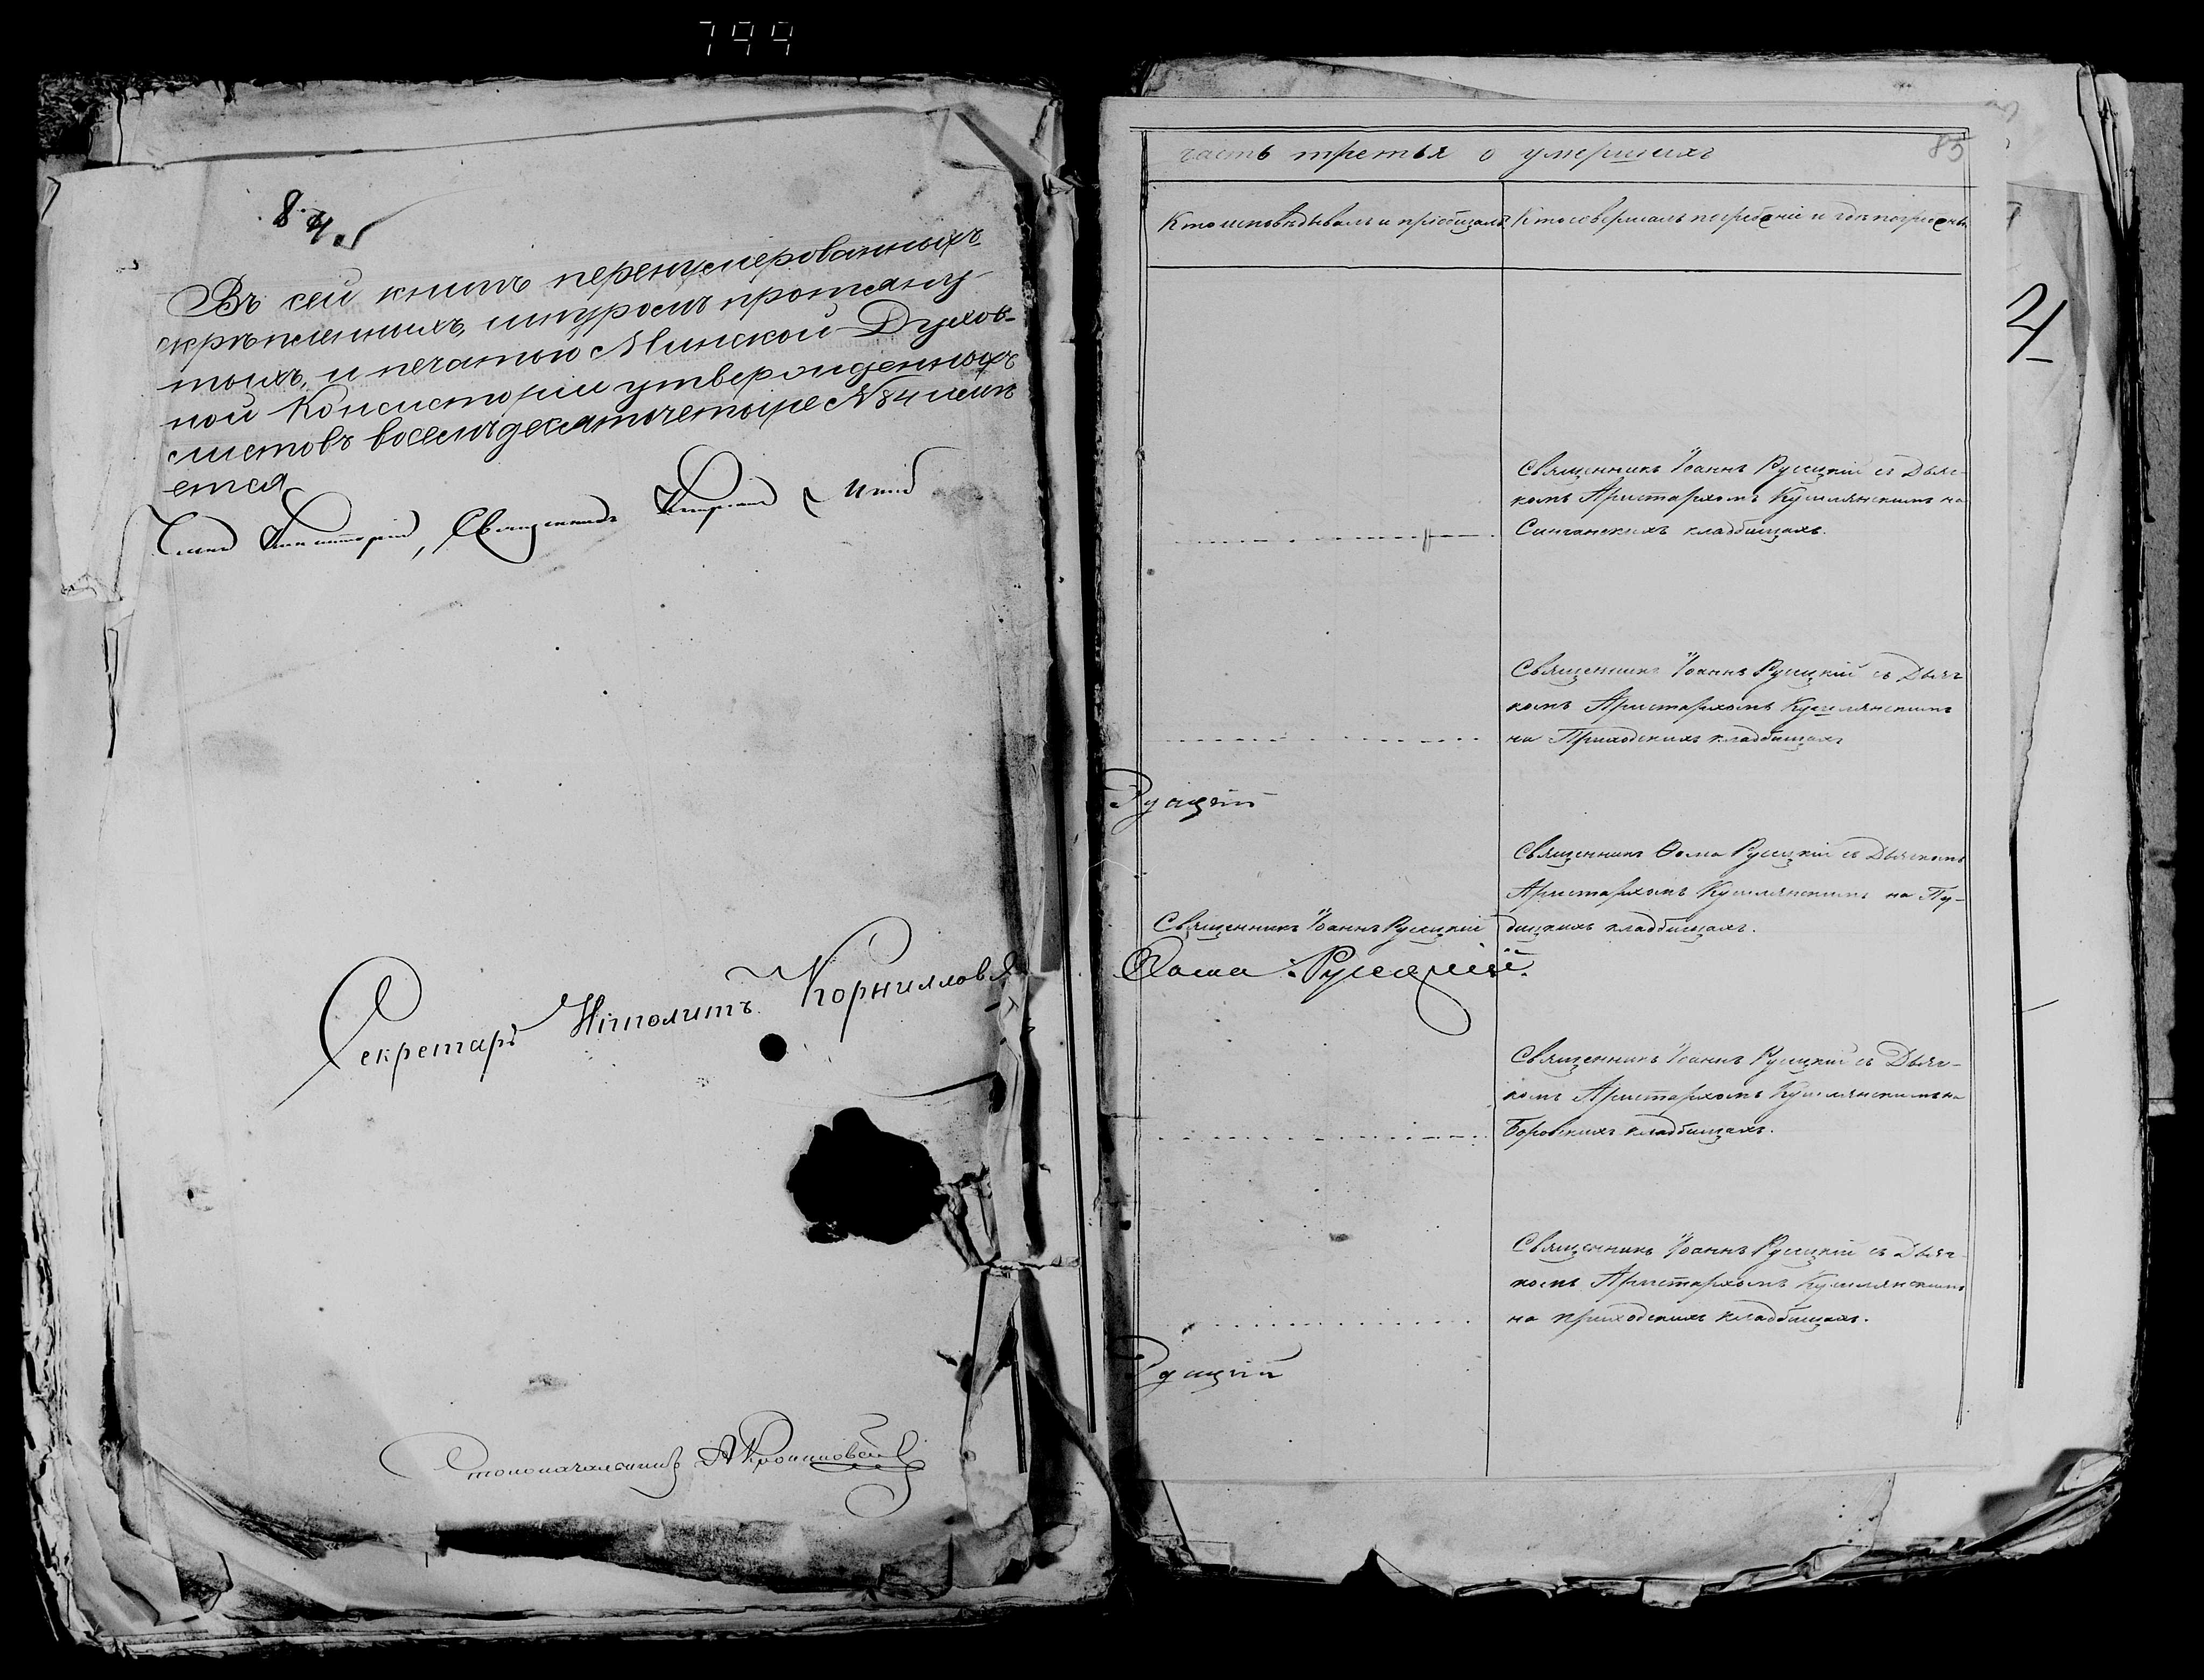 799
84.
Въ сей книгѣ перенумерованныхъ
скрѣпленныхъ, шнуромъ протяну-
тыхъ, и печатью Минской Духов-
ной Консисторіи утвержденныхъ
листовъ восемьдесятъ четыре №84 имѣ
ется
Членъ Консисторіи, Священникъ
Секретарь Ипполитъ Корниллов
Столоначальникъ
85
часть третья о умершихъ
Кто исповѣдывалъ и пріобщалъ
Кто совершалъ погребеніе и гдѣ погребены
4
Священникъ Іоаннъ Русецкій съ Дьяч-
комъ Аристархомъ Кушлянскимъ на
кладбищахъ.
Священникъ Іоаннъ Русецкій съ Дьяч
комъ Аристархомъ Кушлянскимъ
на Приходскихъ кладбищахъ
Русецкій
Священникъ Ѳома Русецкій съ Дьячкомъ
Аристархомъ Кушлянскимъ на Пу-
дицкихъ кладбищахъ.
Священникъ Іоаннъ Русецкій
Ѳома Русецкій.
Священникъ Іоаннъ Русецкій съ Дьяч-
комъ Аристархомъ Кушлянскимъ на
Боровскихъ кладбищахъ.
Священникъ Іоаннъ Русецкій съ Дьяч
комъ Аристархомъ Кушлянскимъ
на приходскихъ кладбищахъ.
Русецкій